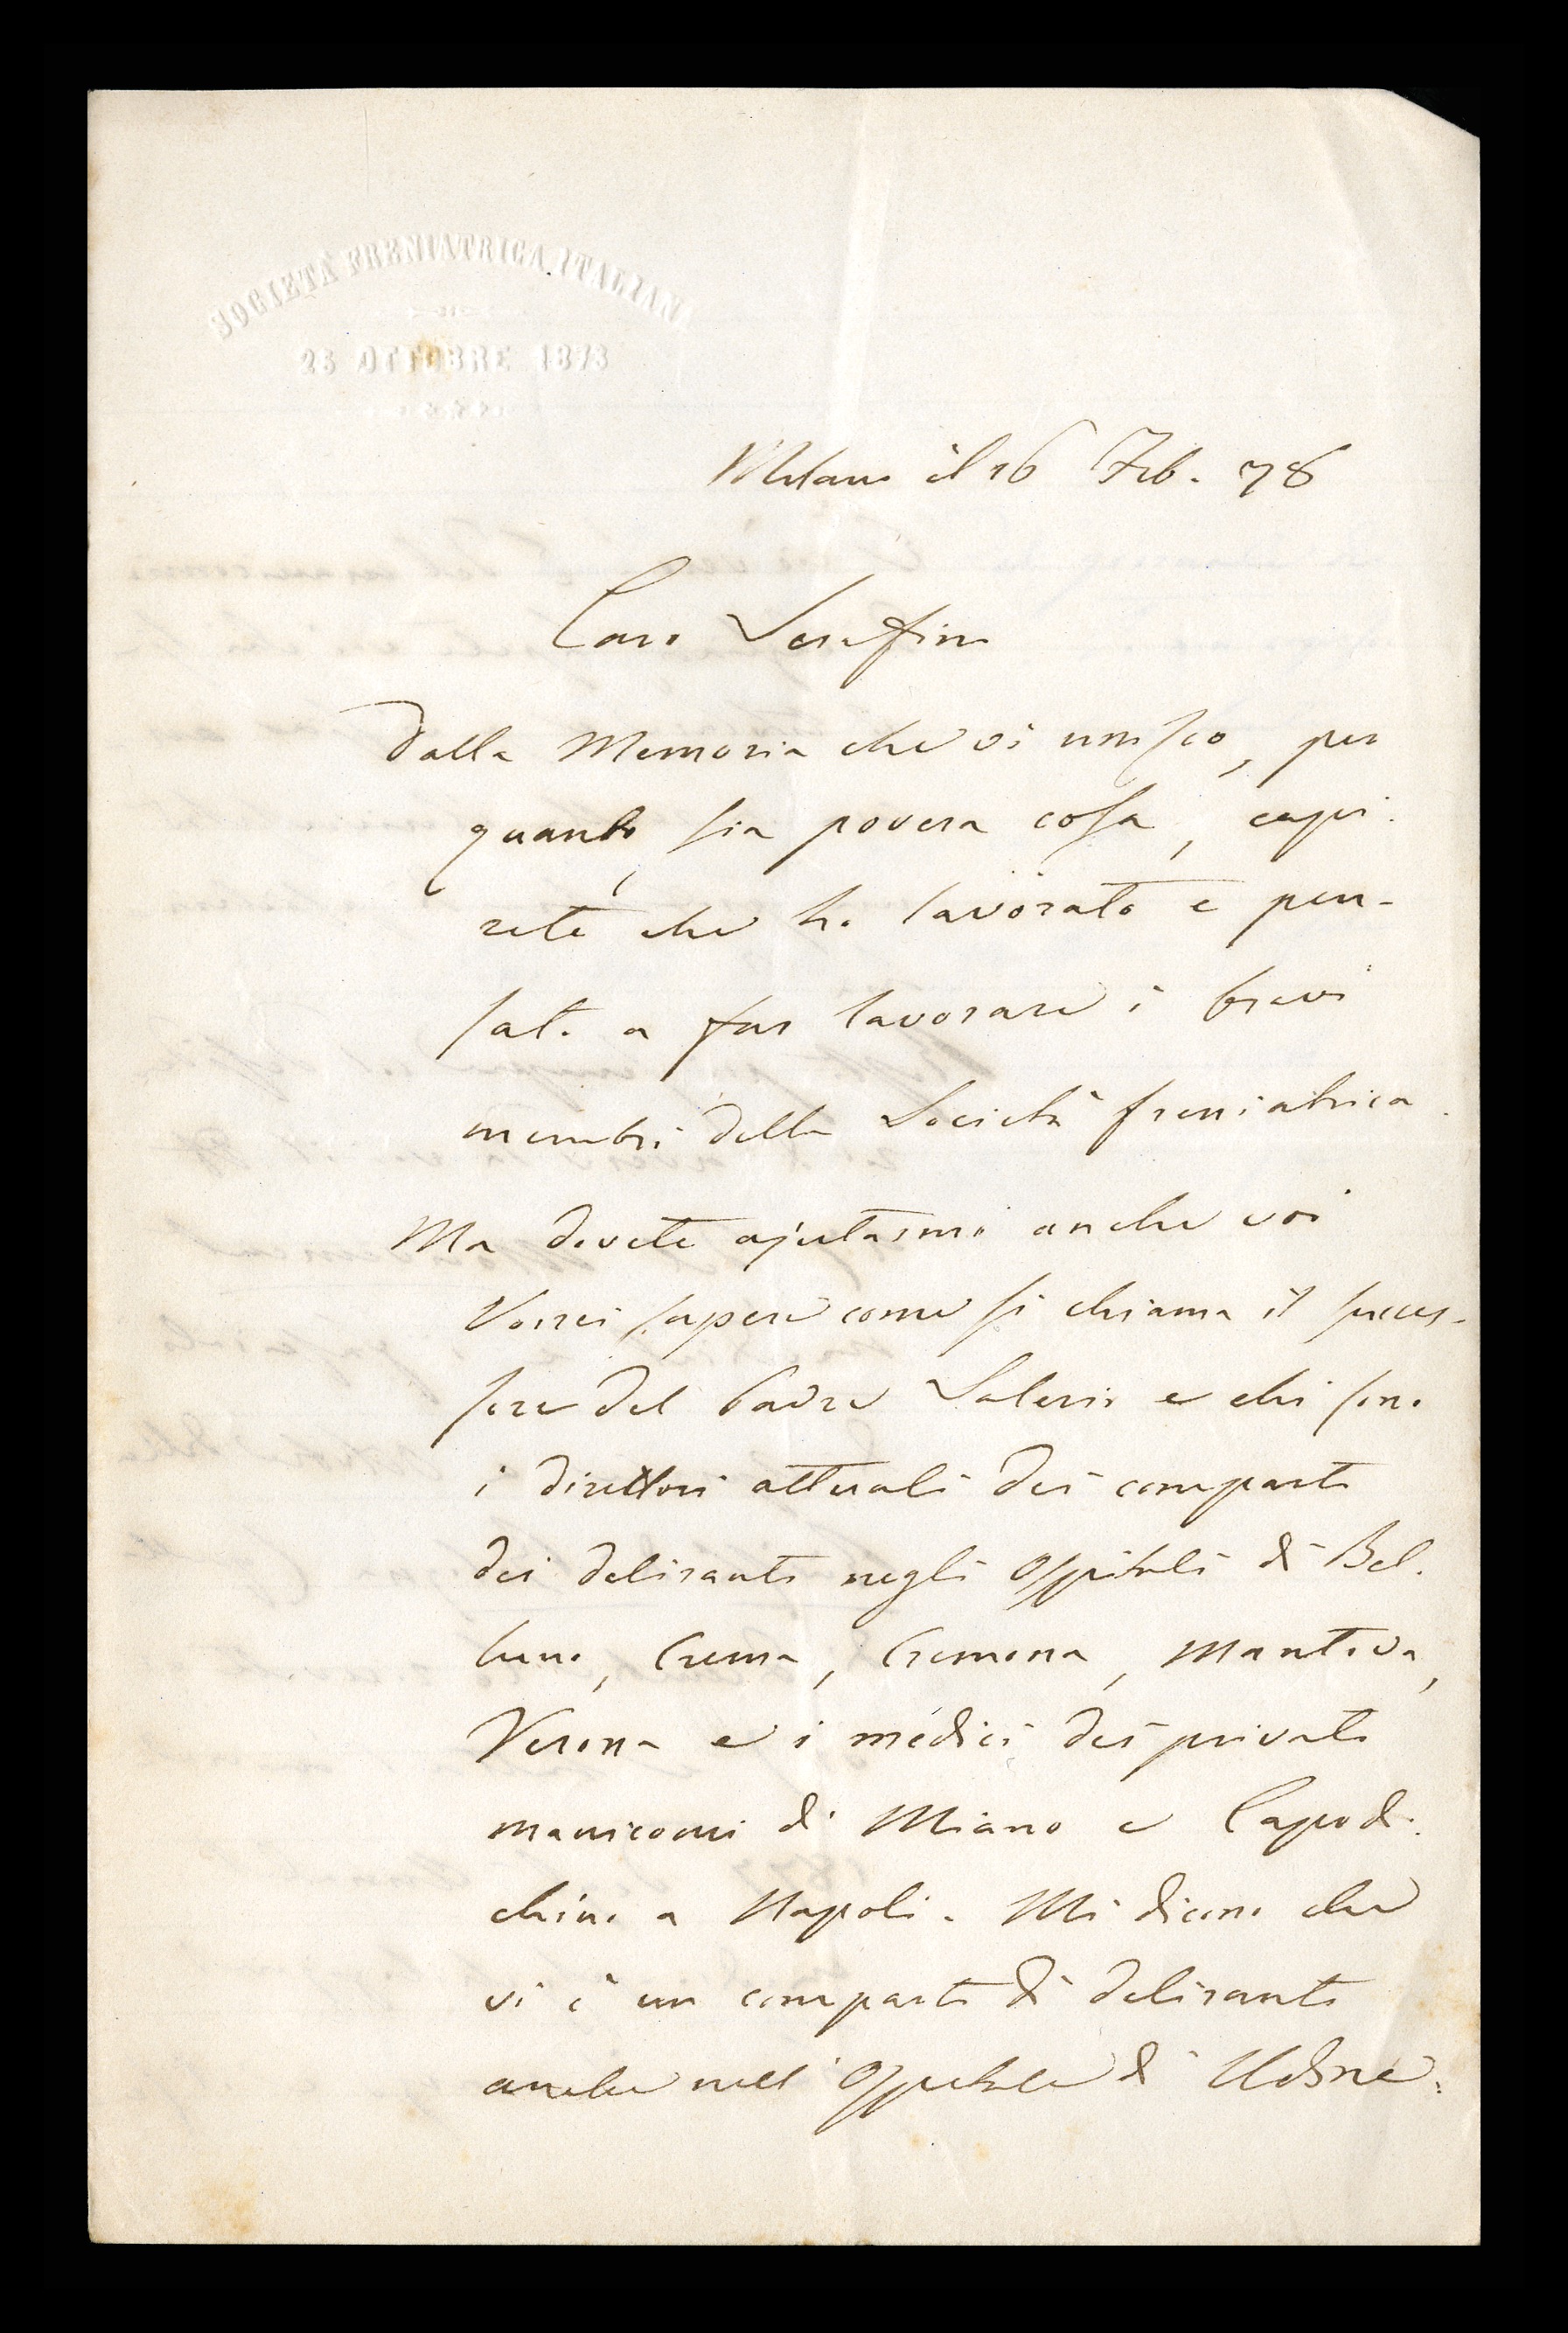 SOCIETÀ FRENIATRICA ITALIANA
23 OTTOBRE 1873
Milano il 16 Feb. 78
Caro Serafino
Dalla Memoria che vi unisco, per
quanto sia povera cosa, capi-
rete che ho lavorato e pen-
sato a far lavorare i bravi
membri della Società freniatrica.
Ma dovete ajutarmi anche voi
Vorrei sapere come si chiama il succes-
sore del Padre Salerio e chi sono
i direttori attuali dei comparti
dei deliranti negli Ospitali di Bel-
luno, Crema, Cremona, Mantova,
Verona e i medici dei privati
manicomi di Miano e Capodi-
chino a Napoli. Mi dicono che
vi è un comparto di deliranti
anche nell'Ospitale di Udine: